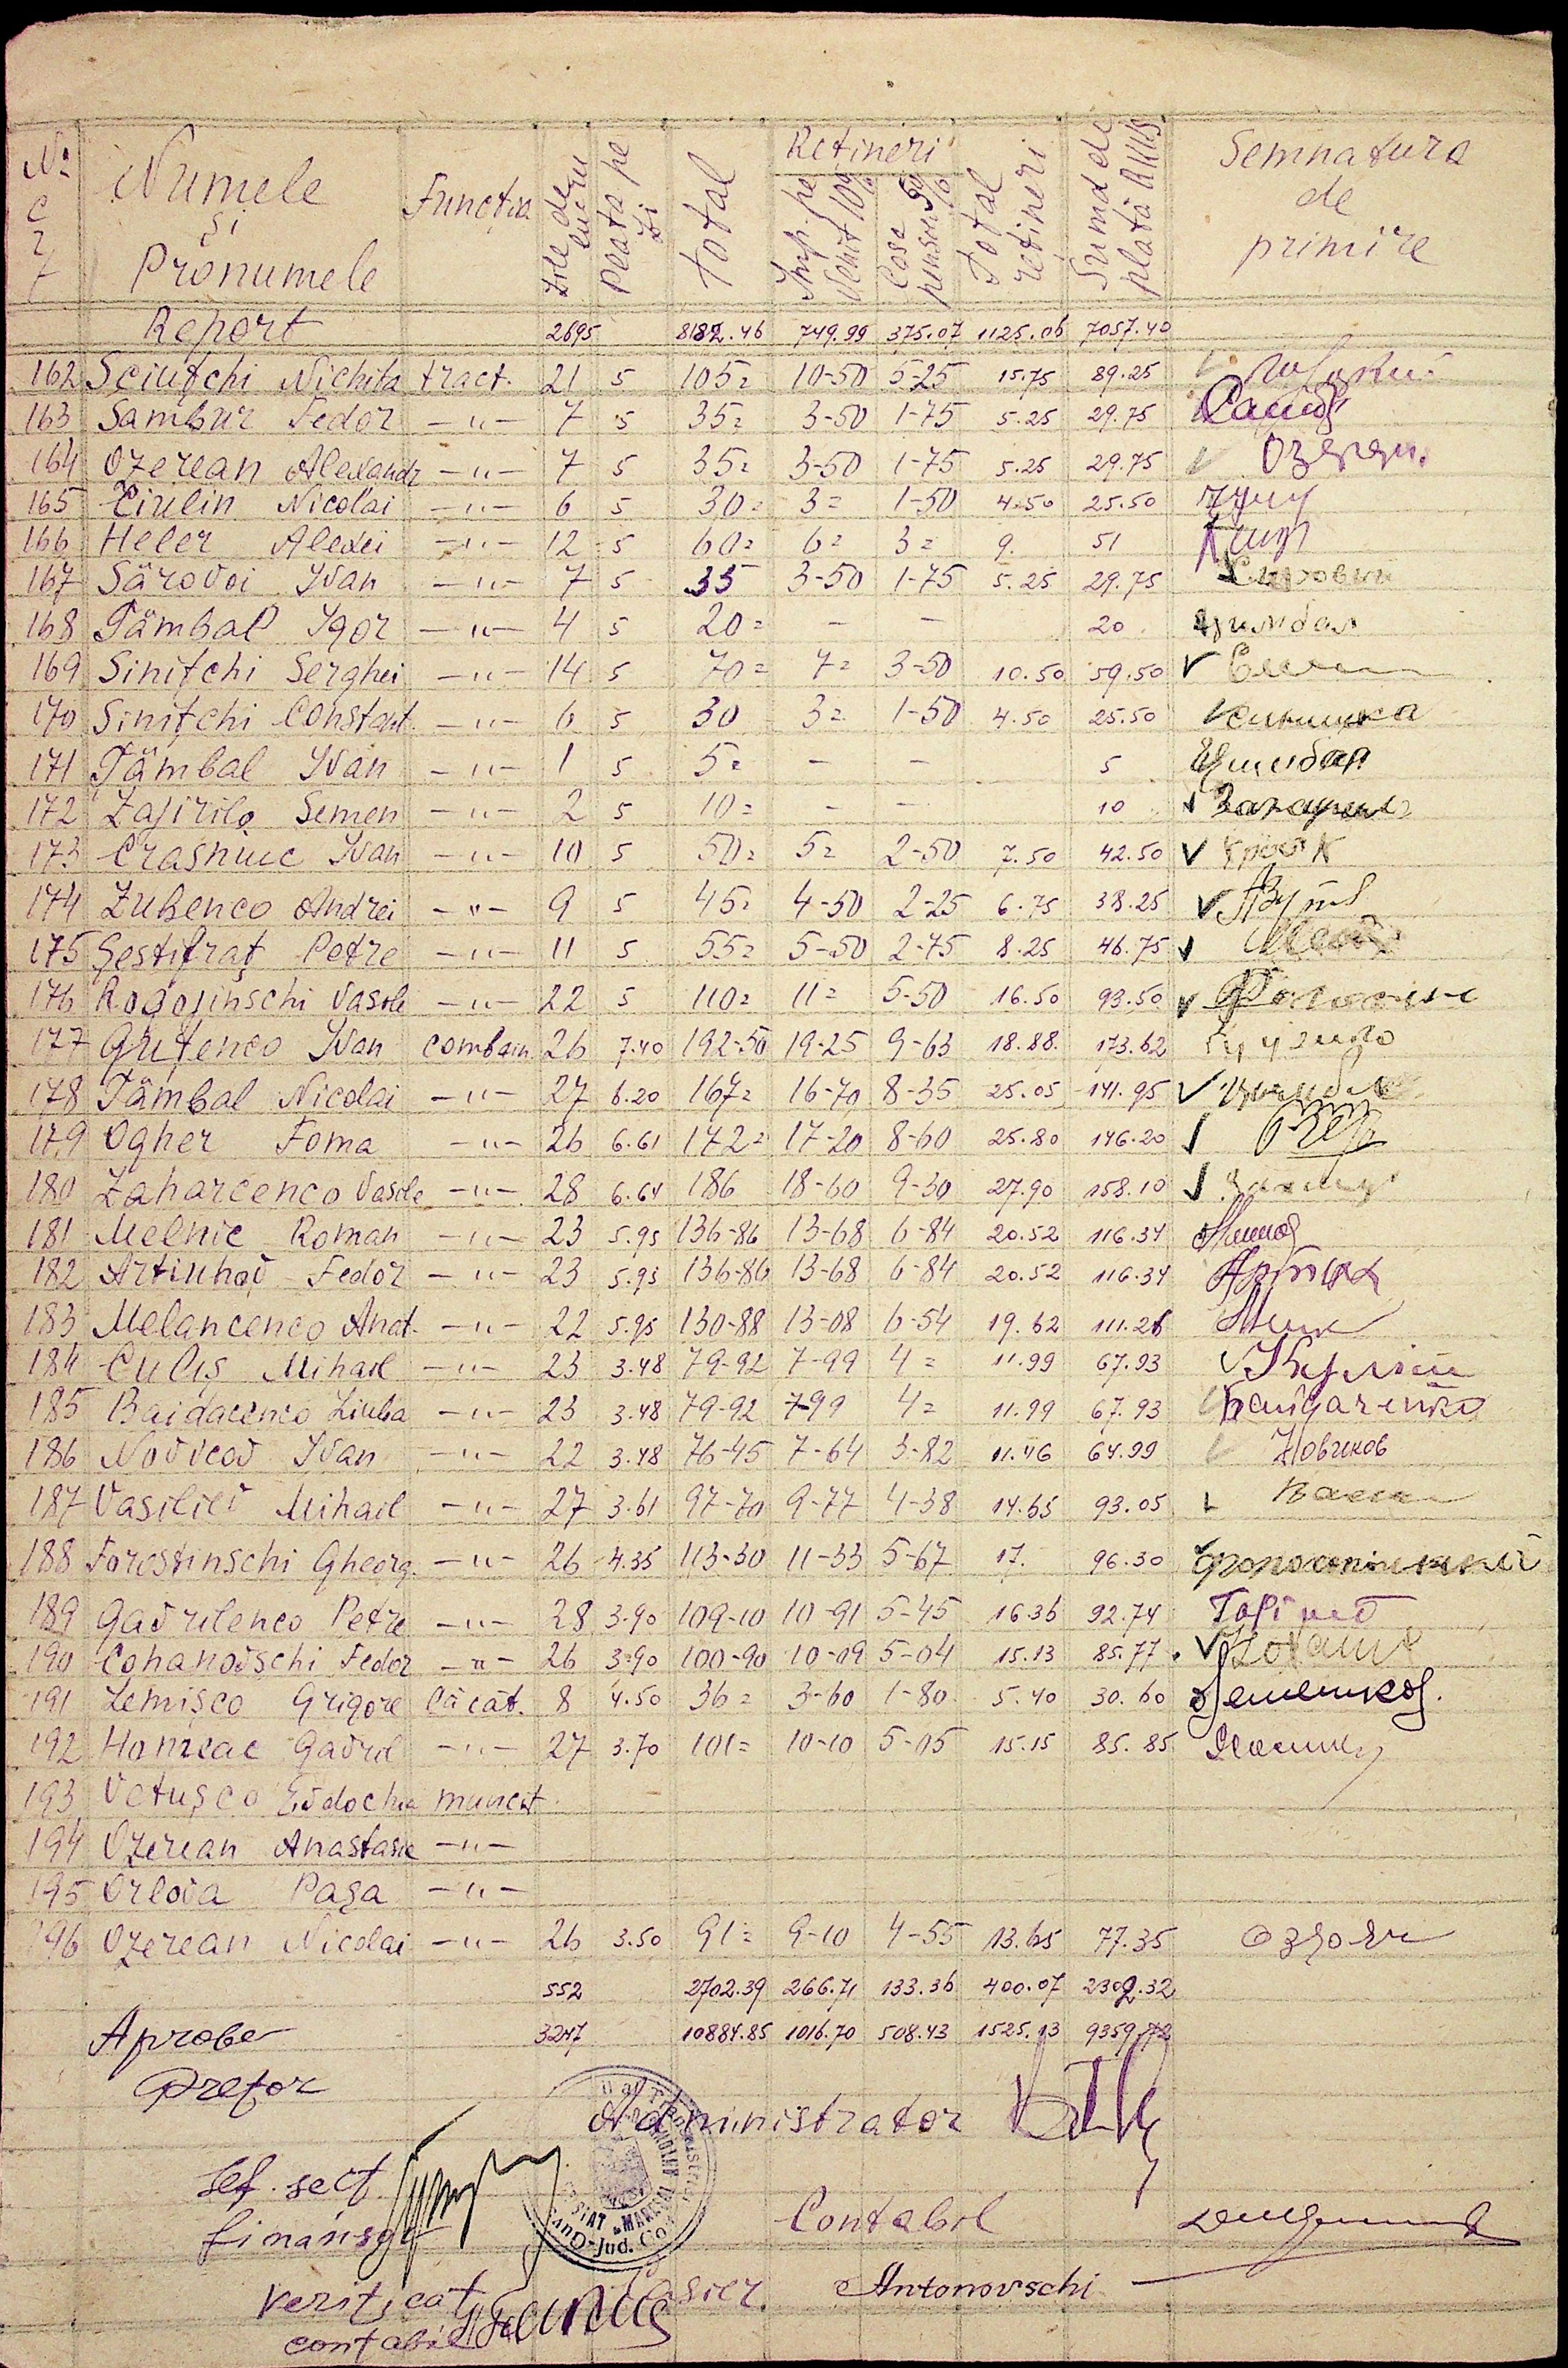 № crt Numele și Pronumele Funcția Zile de lucru Plata pe zi Total Rețineri Imp. pe venit 10% Casa pensii 5% Total rețineri Suma de plată RKKS Semnatura de primire
Report 2695 8182.46 749.99 375.07 1125.06 7057.40
162 Sciuțchi Nichita tract. 21 5 105= 10-50 5-25 15.75 89.25
163 Sambur Fedor —"— 7 5 35= 3-50 1-75 5.25 29.75 Самб
164 Ozerean Alexandr —"— 7 5 35= 3-50 1-75 5.25 29.75 Озерян
165 Țiulin Nicolai —"— 6 5 30= 3= 1-50 4.50 25.50
166 Heler Alexei —"— 12 5 60= 6= 3= 9. 51
167 Sărovoi Ivan —"— 7 5 35 3-50 1-75 5.25 29.75 Сыровий
168 Țâmbal Igor —"— 4 5 20= – – 20 Цимбал
169 Sinițchi Serghei —"— 14 5 70= 7= 3-50 10.50 59.50
170 Sinițchi Constant. —"— 6 5 30 3= 1-50 4.50 25.50
171 Țâmbal Ivan —"— 1 5 5= – – 5 Цимбал
172 Zajirilo Semen —"— 2 5 10= – – 10
173 Crasniuc Ivan —"— 10 5 50= 5= 2-50 7.50 42.50
174 Zubenco Andrei —"— 9 5 45= 4-50 2-25 6.75 38.25 АЗуб
175 Șestifraț Petre —"— 11 5 55= 5-50 2-75 8.25 46.75
176 Rogojinschi Vasile —"— 22 5 110= 11= 5-50 16.50 93.50
177 Grițenco Ivan combain. 26 7.40 192-50 19-25 9-63 18.88 173.62
178 Țâmbal Nicolai —"— 27 6.20 167= 16-70 8-35 25.05 141.95 Цимбал
179 Ogher Foma —"— 26 6.61 172= 17-20 8-60 25.80 146.20
180 Zaharcenco Vasile —"— 28 6.64 186 18-60 9-30 27.90 158.10
181 Melnic Roman —"— 23 5.95 136-86 13-68 6-84 20.52 116.34
182 Artiuhov Fedor —"— 23 5.95 136-86 13-68 6-84 20.52 116.34 Артюх
183 Melancenco Anat. —"— 22 5.95 130-88 13-08 6-54 19.62 111.26
184 Culiș Mihail —"— 23 3.48 79-92 7-99 4= 11.99 67.93 Куліш
185 Baidacenco Liuba —"— 23 3.48 79-92 7-99 4= 11.99 67.93 Байдаченко
186 Novicov Ivan —"— 22 3.48 76-45 7-64 3-82 11.46 64.99 Новиков
187 Vasiliev Mihail —"— 27 3.61 97-70 9-77 4-38 14.65 93.05
188 Forostinschi Gheorg. —"— 26 4.35 113-30 11-33 5-67 17. 96.30 Форостінский
189 Gavrilenco Petre —"— 28 3.90 109-10 10-91 5-45 16.36 92.74
190 Cohanovschi Fedor —"— 26 3.90 100-90 10-09 5-04 15.13 85.77
191 Lemișco Grigore Căcăt. 8 4.50 36= 3-60 1-80 5.40 30.60
192 Homeac Gavril —"— 27 3.70 101= 10-10 5-05 15.15 85.85
193 Vetușco Evdochia muncit.
194 Ozerean Anastasie —"—
195 Orlova Pașa —"—
196 Ozerean Nicolai —"— 26 3.50 91= 9-10 4-55 13.65 77.35
552 2702.39 266.71 133.36 400.07 2302.32
3247 10884.85 1016.70 508.43 1525.13 9359.72
Aprobe
Pretor
Administrator
Șef. sect.
finansar
Contabil
Verificat Casier. Antonovschi
contabil